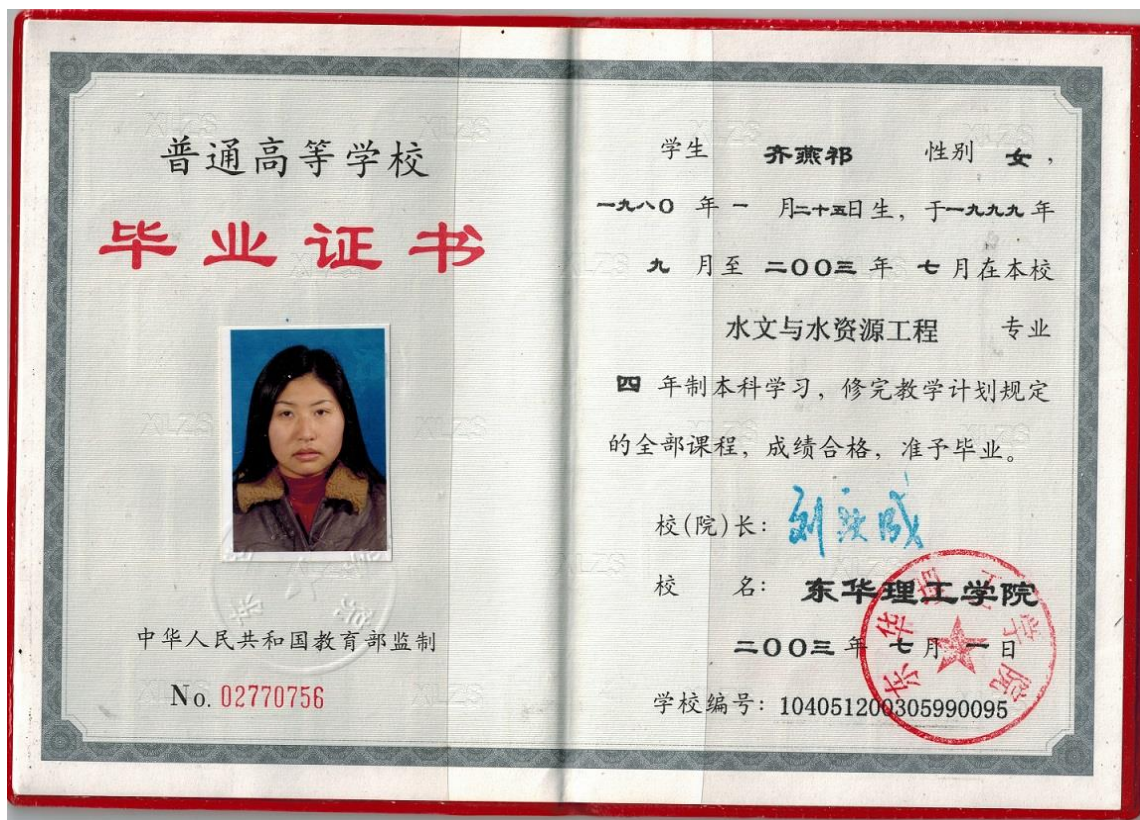 普通高等学校
毕业证书
中华人民共和国教育部监制
No. 02770756
学生 齐燕祁 性别 女，
一九八〇 年 一 月二十五日生，于一九九九 年
九 月至 二〇〇三 年 七 月在本校
水文与水资源工程 专业
四 年制本科学习，修完教学计划规定
的全部课程，成绩合格，准予毕业。
校(院)长：
校 名： 东华理工学院
二〇〇三 年 七 月 一 日
学校编号：104051200305990095
东华理工学院
XLZS